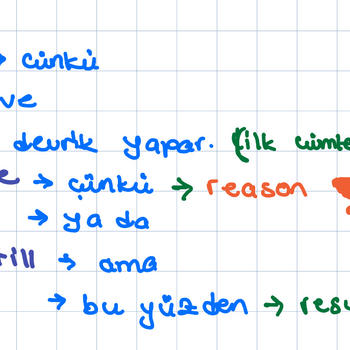 → çünkü
ve
devrik yapar. (ilk cümle
→ çünkü → reason
→ ya da
→ ama
→ bu yüzden → resu